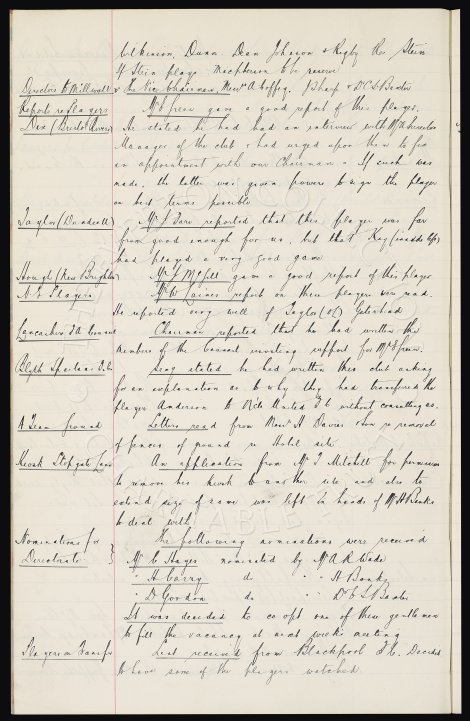 Wilkinson, Dunn. Dean Johnson & Rigby Res Stein
If Stein plays Macpherson to be reserve
Directors to Millwall & the Vice Chairman, Messrs A Coffey, J Sharp & Dr C S Baxter
Reports re Players Mr Green gave a good report of this player.
Dix (Bristol Rovers) He stated he had had an interview with the
Manager of the club & had urged upon them to fix
an appointment with our Chairman. If such was
made, the latter was given powers to sign the player
on best terms possible
Taylor (Dundee U) Mr J reported that this player was far
from good enough for us, but that Kay
had played a very good game
Hough (New Brighton) Mr gave a good report of this player
N.E. Players Mr W report on three players was read.
He reported very well of Taylor (of) Gateshead
Lancashire F A Council Chairman reported that he had written the
members of the Council inviting support for Mr Green.
Blyth Spartans F.C. Secy stated he had written this club asking
for an explanation as to why they had transferred the
player Anderson to Notts United F C without consulting us.
A Team ground Letters read from Messrs H Davies & Son re removal
of fences of ground re Hotel site
Kiosk Stopgate Lane An application from Mr T Mitchell for permission
to remove his kiosk to another site and also to
extend size of same was left in hands of Mr H Banks
to deal with
Nominations for The following nominations were received
Directorate } Mr C Hayes nominated by Mr A R Wade
" H Carry do " " H Banks
" D Gordon do " Dr C S Baxter
It was decided to co opt one of these gentlemen
to fill the vacancy at next weeks meeting
Players on Transfer List received from Blackpool F.C. Decided
to have some of the players watched.